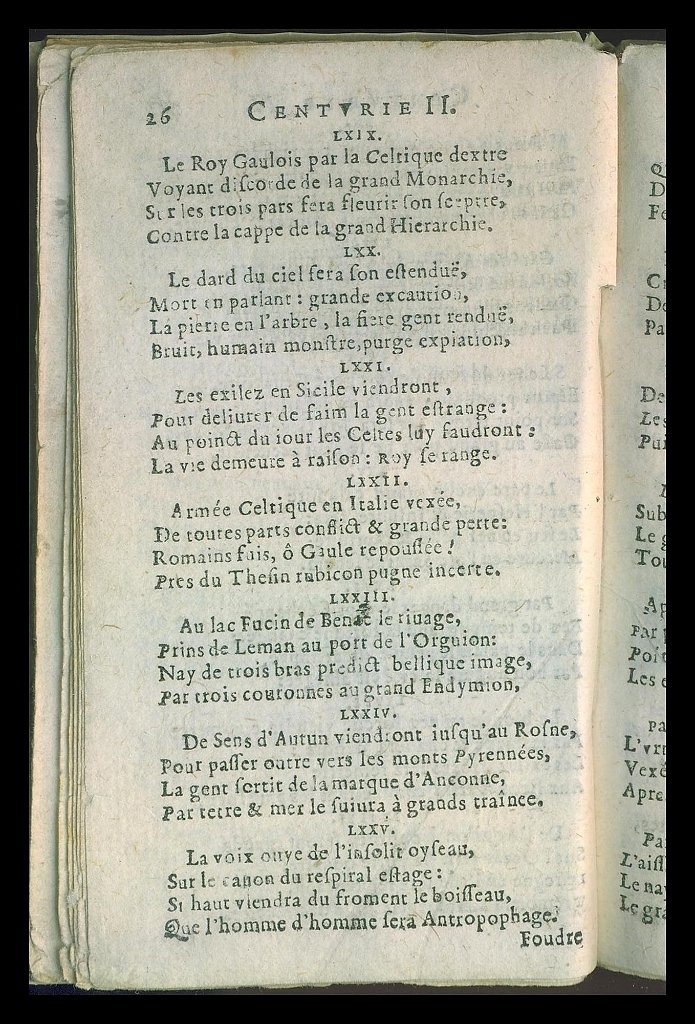 26 CENTVRIE II.
LXIX.
Le Roy Gaulois par la Celtique dextre
Voyant discorde de la grand Monarchie,
Sur les trois pars fera fleurir son sceptre,
Contre la cappe de la grand Hierarchie.
LXX.
Le dard du ciel fera son estenduë,
Mort en parlant : grande excution,
La pierre en l'arbre, la fiere gent renduë,
Bruit, humain monstre, purge expiation,
LXXI.
Les exilez en Sicile viendront,
Pour deliurer de faim la gent estrange :
Au poinct du iour les Celtes luy faudront :
La vie demeure à raison : Roy se range.
LXXII.
Armée Celtique en Italie vexée,
De toutes parts conflict & grande perte:
Romains fuis, ô Gaule repoussée !
Pres du Thesin rubicon pugne incerte.
LXXIII.
Au lac Fucin de Benac le riuage,
Prins de Leman au port de l'Orguion:
Nay de trois bras predict bellique image,
Par trois couronnes au grand Endymion,
LXXIV.
De Sens d'Autun viendront iusqu'au Rosne,
Pour passer outre vers les monts Pyrennées,
La gent sortit de la marque d'Anconne,
Par terre & mer le suiura à grands traînee.
LXXV.
La voix ouye de l'insolit oyseau,
Sur le canon du respiral estage :
Si haut viendra du froment le boisseau,
Que l'homme d'homme sera Antropophage.
Foudre